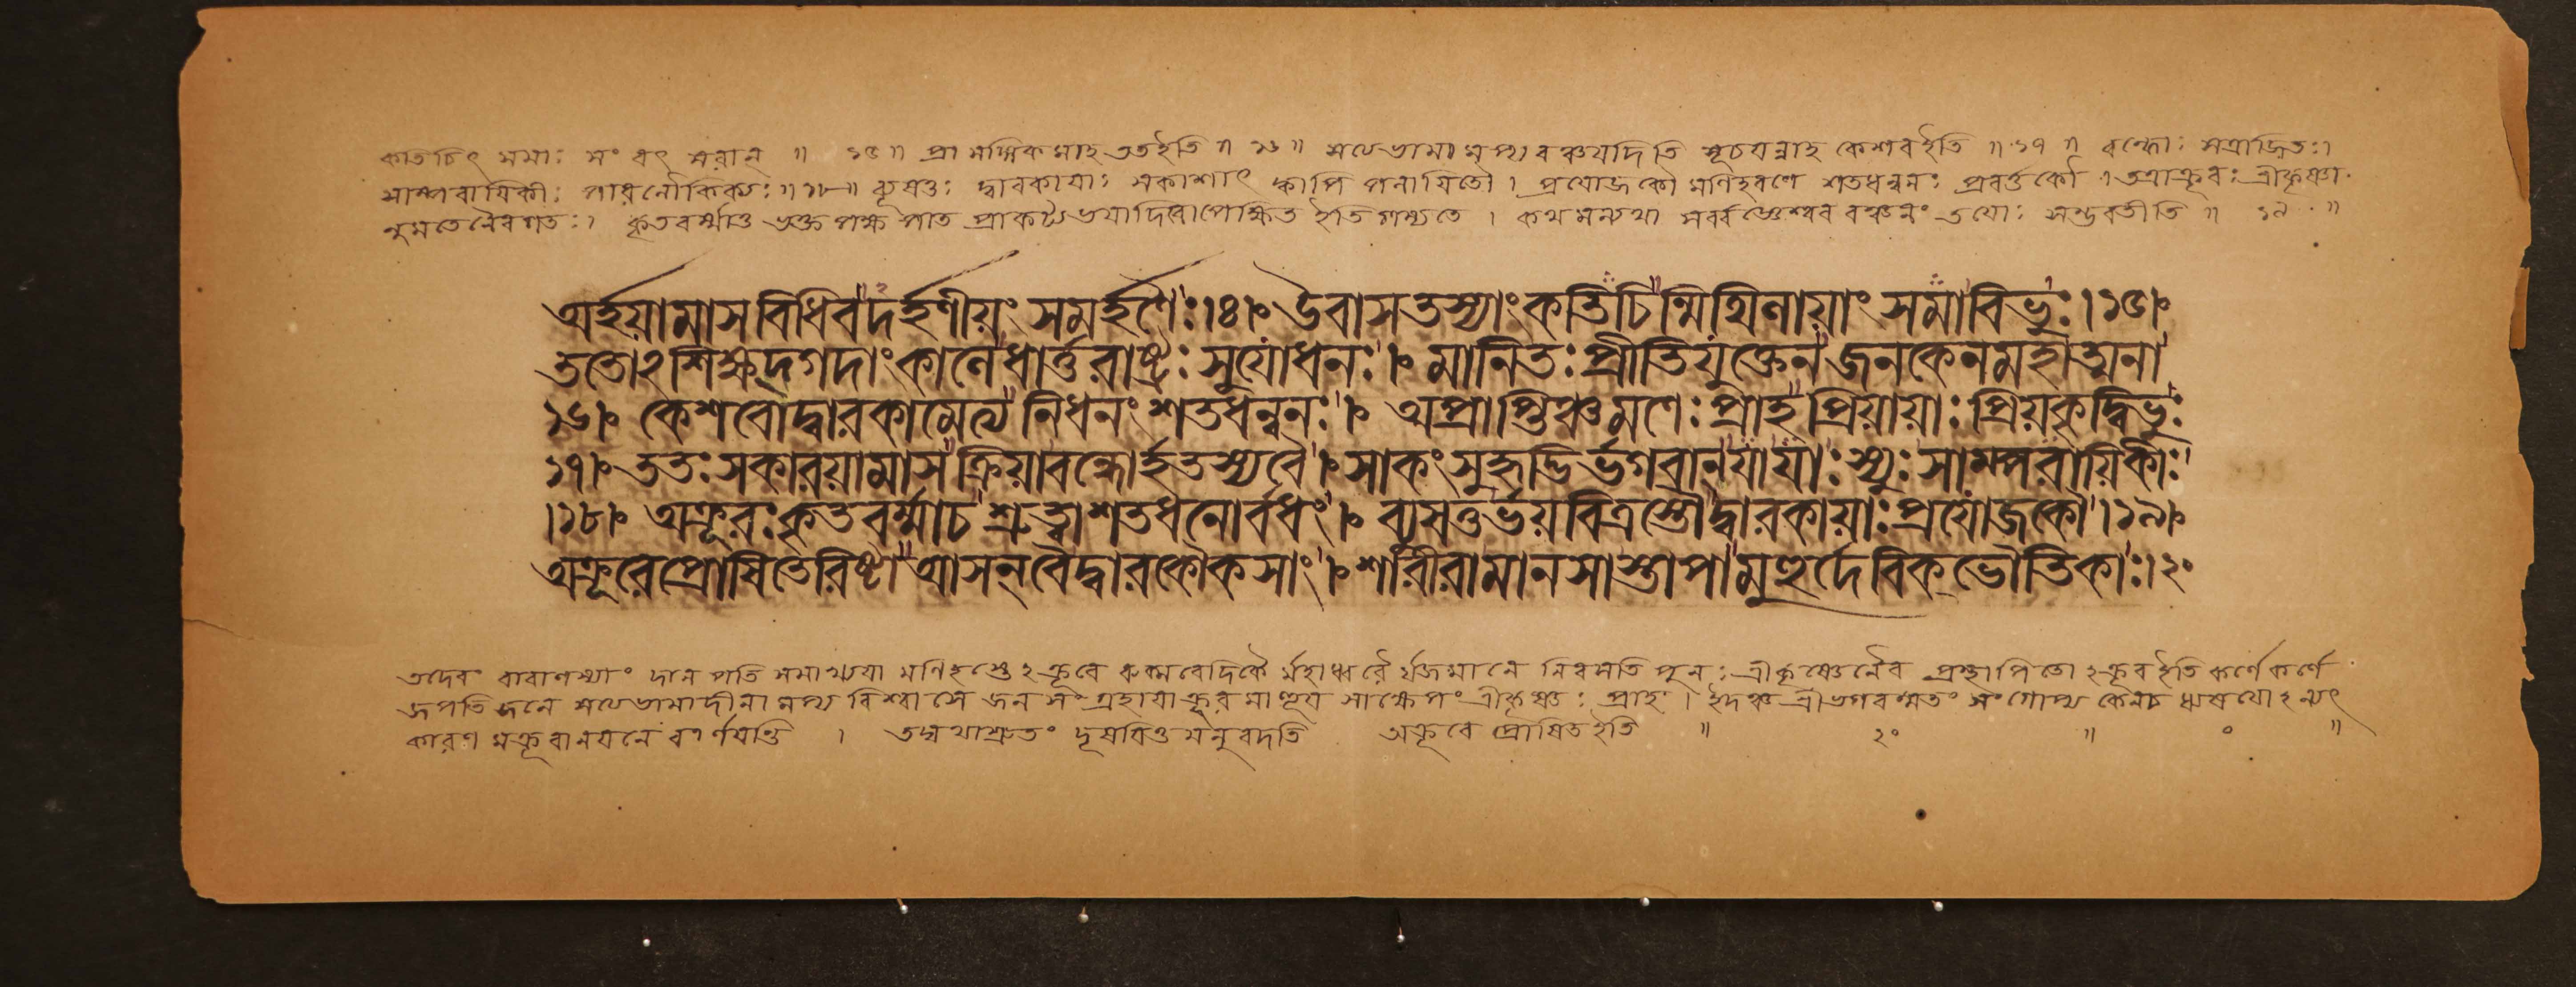 কতিচিৎ সমাঃ সংবৎসরান্ ॥ ১৫ ॥ প্রাসঙ্গিকমাহ ততইতি ॥ ১৬ ॥ সত্যভামামপ্যবঞ্চয়দিতি সূচয়ন্নাহ কেশবইতি ॥ ১৭ ॥ বন্ধোঃ সত্রাজিতঃ।
সাম্পরায়িকীঃ পারলৌকিক্যঃ ॥ ১৮ ॥ ব্যূষতুঃ দ্বারকায়াঃ সকাশাৎ ক্বাপি পলায়িতৌ । প্রযোজকৌ মণিহরণে শতধন্বনঃ প্রবর্ত্তকৌ । তত্রাক্রূরঃ শ্রীকৃষ্ণা
নুমতেনৈবগতঃ। কৃতবর্ম্মাতু ভক্তপক্ষপাত প্রাকট্যভয়াদিবোপেক্ষিত ইতিগম্যতে । কথমন্যথা সর্ব্বজ্ঞেশ্বর বঞ্চনং তয়োঃ সম্ভবতীতি ॥ ১৯ ॥
অর্হয়ামাসবিধিবদর্হণীয়ং সমর্হণৈঃ।৪।১ উবাসতস্যাংকতিচিন্মিথিলায়াং সমাবিভুঃ।১৫।১
ততোঽশিক্ষদ্গদাংকালেধার্ত্তরাষ্ট্রঃ সুযোধনঃ।১ মানিতঃ প্রীতিযুক্তেনজনকেনমহাত্মনা
১৬।১ কেশবোদ্বারকামেত্য নিধনংশতধন্বনঃ।১ অপ্রাপ্তিঞ্চমণেঃ প্রাহপ্রিয়ায়াঃ প্রিয়কৃদ্বিভুঃ
১৭।১ ততঃ সকারয়ামাসক্রিয়াবন্ধোর্হতস্যবৈ।১ সাকংসুহৃদ্ভির্ভগবান্যায়াঃ স্যুঃ সাম্পরায়িকীঃ
।১৮।১ অক্রূরঃ কৃতবর্ম্মাচ শ্রুত্বাশতধনোর্বধং।১ ব্যূষতুর্ভয়বিত্রস্তৌদ্বারকায়াঃ প্রযোজকৌ।১৯।১
অক্রূরেপ্রোষিতেরিষ্টা আসন্বৈদ্বারকৌকসাং।১ শারীরামানসাস্তাপামুহুর্দৈবিকভৌতিকাঃ।২০
তদেবং বারাণস্যাং দানপতি সমাখ্যয়া মণিহস্তেঽক্রূরে রুক্মবেদিকৈ র্মহাধ্বরৈ র্যজমানে নিবসতি পুনঃ শ্রীকৃষ্ণেনৈব প্রস্থাপিতোঽক্রূরইতি কর্ণেকর্ণে
জপতিজনে সত্যভামাদীনামপ্য বিশ্বাসে জনসংগ্রহায়াক্রূরমাহূয় সাক্ষেপং শ্রীকৃষ্ণঃ প্রাহ । ইদঞ্চ শ্রীভগবন্মতং সংগোপ্য কেচন ঋষয়োঽন্যৎ
কারণ মক্রূরানয়নে বর্ণয়ন্তি । তদ্যথাশ্রুতং দূষয়িতুমনুবদতি অক্রূরে প্রোষিতইতি ॥ ২০ ॥ ০ ॥